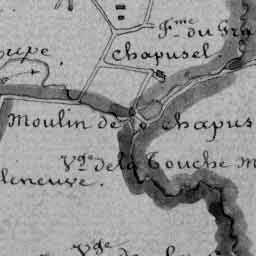 F.me du Gra
Chapusel.
oupe.
Moulin de chapus
V.ge de la Touche M
lleneuve.
V.ge